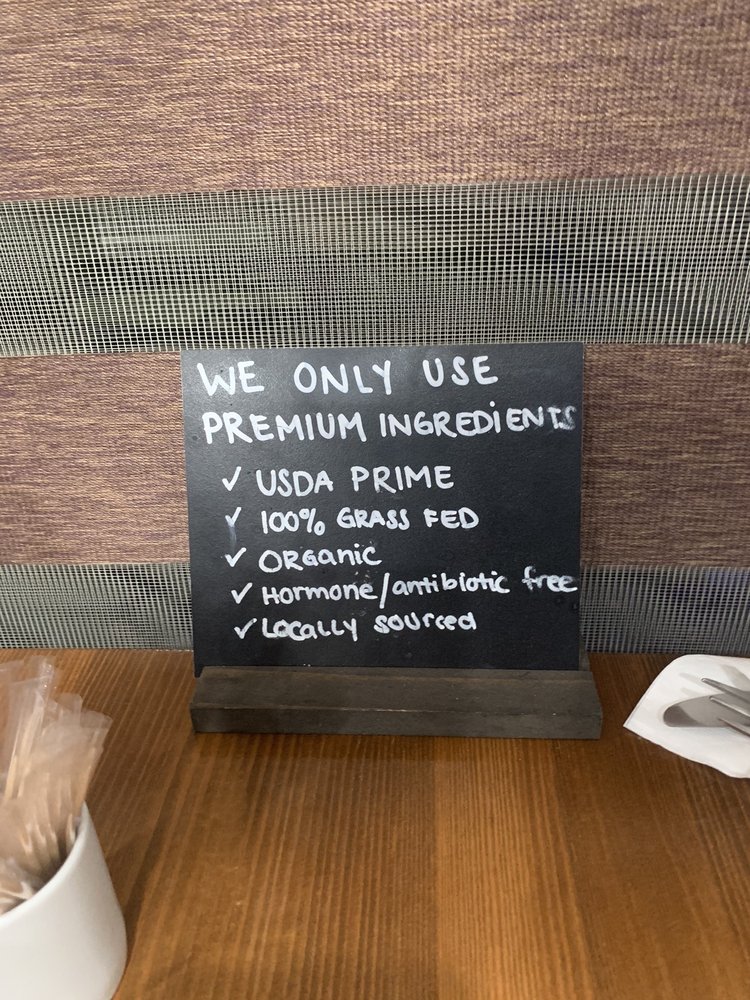 WE ONLY USE
PREMIUM INGREDIENTS
✓ USDA PRIME
✓ 100% GRASS FED
✓ ORGaniC
✓ Hormone/antibiotic free
✓ Locally sourced